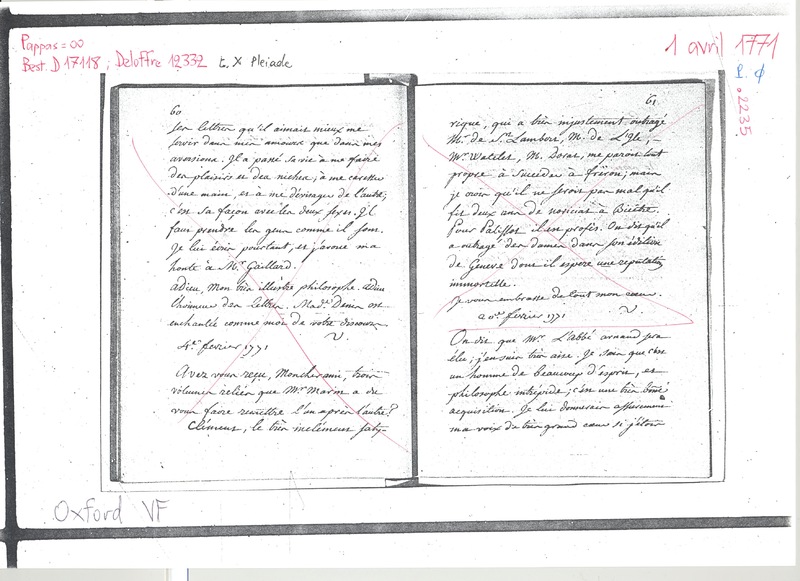 Pappas = 00
Best. D 17118 ; Deloffre 12332 t. X Pleiade
1 avril 1771
P. ϕ
.2235
60
ses lettres qu'il aimait mieux me
servir dans mes amours que dans mes
aversions. Il a passé sa vie à me faire
des plaisirs et des niches; à me caresser
d'une main, et à me dévisager de l'autre;
c'est sa façon avec les deux sexes. Il
faut prendre les gens comme ils sont.
Je lui écris pourtant, et j'avoue ma
honte à Mr. Gaillard.
adieu, Mon très illustre philosophe. adieu
l'honneur des lettres. Made. Denis est
enchantée comme moi de votre discours.
V.
4e. fevrier 1771
Avez vous reçu, Mon cher ami, trois
volumes reliés que Mr. Marin a du
vous faire remettre l'un après l'autre?
Clément, le très inclément saty-
61
rique, qui a bien injustement outragé
Mr. de St. Lambert, M. de L'Isle,
Mr. Watelet, M. Dorat, me parait tout
propre à succéder à fréron; mais
je crois qu'il ne serait pas mal qu'il
fit deux ans de noviciat à Bicêtre.
Pour Palissot il est profès. On dit qu'il
a outragé des dames dans son édition
de Geneve dont il espere une reputation
immortelle.
Je vous embrasse de tout mon coeur.
fevrier 1771 V.
On dit que Mr. L'abbé arnaud sera
élu; j'en suis bien aise. Je sais que c'est
un homme de beaucoup d'esprit, et
philosophe intrépide; c'est une très bonne
acquisition. Je lui donnerais assurément
ma voix de très grand coeur si j'étais
Oxford VF